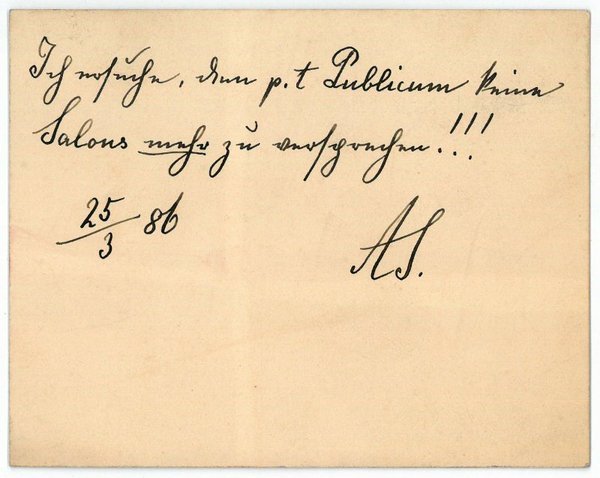 Ich ersuche, dem p.t Publicum keine
Salons mehr zu versprechen!!!
25/3 86
AS.